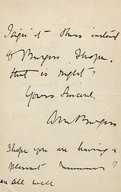 instead
of Burgess. I hope
that is right?
Yours Sincerely
Burgess
I hope you are having a
pleasant summer?
all well